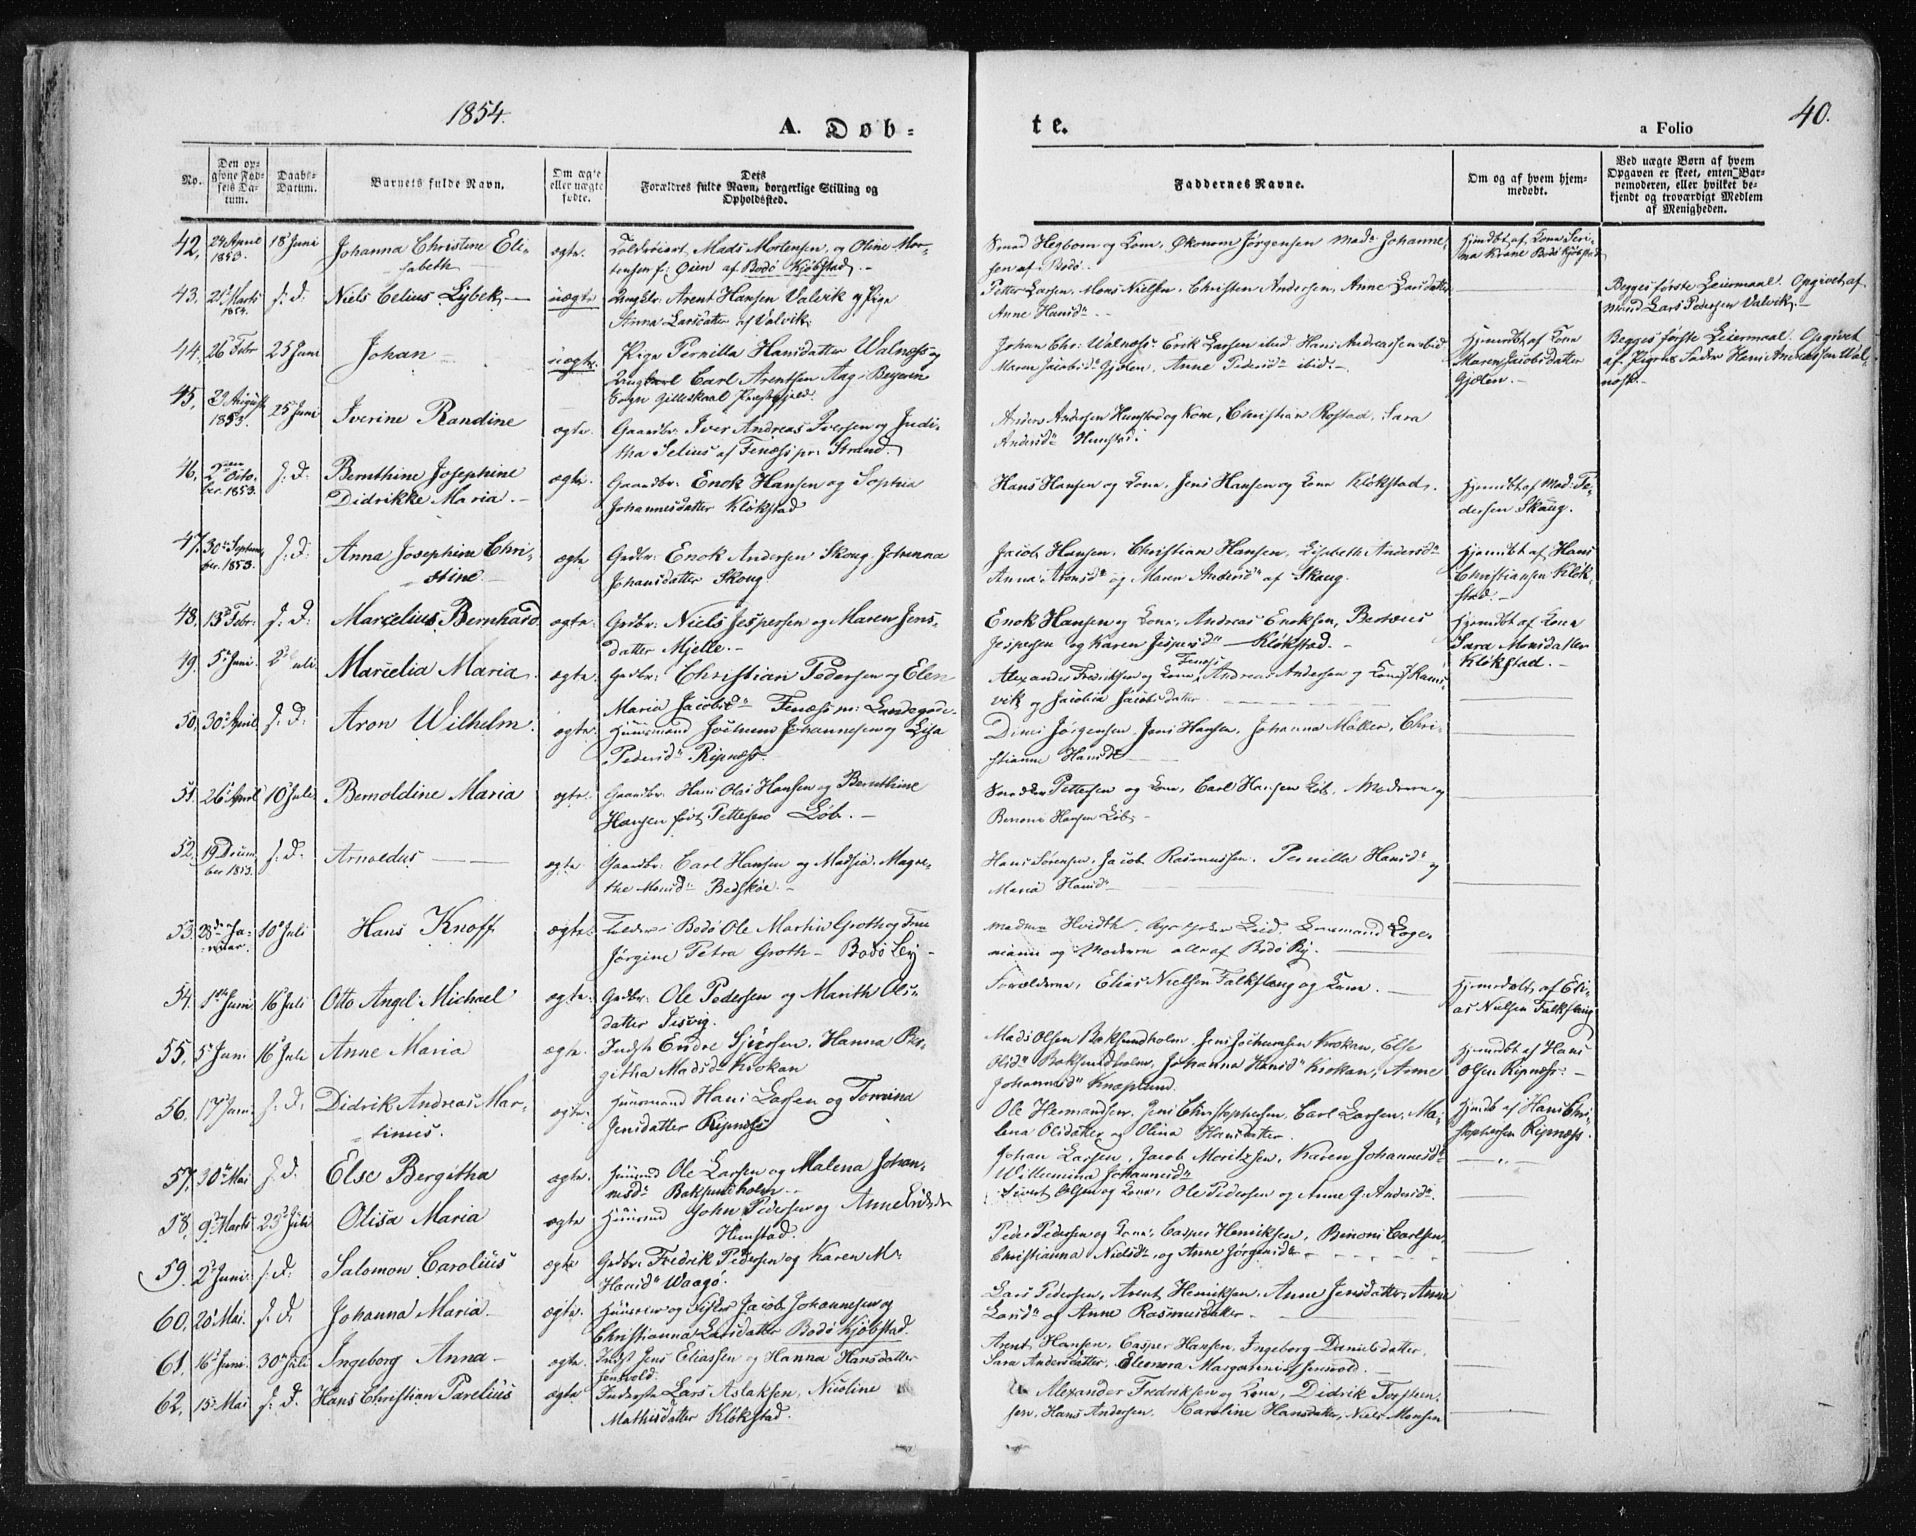 1854.
A. Døb-
te.
a Folio
40.
No.
Den opgivne Fødsels Datum.
Daabs-Datum.
Barnets fulde Navn.
Om ægte eller uægte fødte.
Dets Forældres fulde Navn, borgerlige Stilling og Opholdssted.
Faddernes Navne.
Om og af hvem hjemmedøbt.
Ved uægte Børn af hvem Opgaven er skeet, enten Barnemoderen, eller hvilket bekjendt og troværdigt Medlem af Menigheden.
42. 24 April 1853. 18 Juni Johanna Christine Elisabeth ægte. Mads Mortensen, og Oline Mortensen f: Øien af Bodø Kjøbstad.
Hegborn og Kone, Økonom Jørgensen Mad. Johannesen af Bodø.
Hjmdbt af Krane Bodø Kjøbstad
43. 21 Marts 1854. s. D. Niels Celius Lybek. uægte Arent Hansen Valvik og Pige Anna Larsdatter af Valvik.
Petter Larsen, Mons Nielsen, Christen Andersen, Anne Larsdatter Anne Hansd.
Begges første Leiermaal. Opgivet af Lars Pedersen Valvik.
44. 26 Febr 25 Juni Johan uægte. Pige Pernilla Hansdatter Walnæss og Ungkarl Carl Arentsen Aag, Beyeren Sogn Gilleskaal Præstegjeld.
Johan Chr: Walnæss, Erik Larsen ibid Hans Andreassen ibid Maren Jacobsd. Gjølen, Anne Pedersd. ibid.
Hjemdbt af Kone Maren Jacobsdatter Gjølen.
Begges første Leiermaal. Opgivet af Pigens Fader Hans Andreassen Walnæss.
45. August 1853. 25 Juni Iverine Randine ægte. Gaardbr: Iver Andreas Iversen og Juditha Selius af Fenæss pr: Strand.
Anders Andersen Hunstad og Kone, Christian Rostad, Sara Andersd. Hunstad.
46. 2 October. 1853. s. D. Bernthine Josephine Didrikke Maria. ægte. Gaardbr: Enok Hansen og Sophia Johannesdatter Kløkstad
Hans Hansen og Kone, Jens Hansen og Kone Kløkstad.
Hjemdbt af Mad: Pedersen Skaug.
47. 30 September. 1853. s. D. Anna Josephine Christine. ægte Grdbr: Enok Andersen Skoug, Johanna Johansdatter Skoug
Jacob Hansen, Christian Hansen, Lisebeth Andersd. Anna Aronsd. og Maren Andersd. af Skoug.
Hjemdbt af Hans Christiansen Kløkstad.
48. 13 Febr. s. D. Marcelius Bernhard ægte. Grdbr: Niels Jespersen og Maren Jensdatter Mjelle.
Enok Hansen og Kone, Andreas Enoksen, Jespersen og Karen Jespersd. Kløkstad.
Hjemdbt af Kone Sara Monsdatter Kløkstad.
49. 5 Juni. 2 Juli. Marcelia Maria. ægte. Grdbr: Christian Pedersen og Elen Maria Jacobsd. Fenæss m: Landegode.
Alexander Fredriksen og Kone, Fenæss Andreas Andersen og Kone, og Jacobia Jacobsdatter
50. 30 April s. D. Aron Wilhelm. ægte. Huusmand Jochum Johannesen og Lisa Pedersd. Ripnæss.
Dines Jørgensen, Jens Hansen, Johanna Møller, Christianne Hansd.
51. 26 April 10 Juli Bernoldine Maria ægte. Gaardbr. Hans Olai Hansen og Bernthine Hansen født Pettersen Løb.
Pettersen og Kone, Carl Hansen Løb, Moderen og Benone Hansen Løb.
52. 19 December 1853. s. D. Arnoldus ægte Gaardbr: Carl Hansen og Madsia Magrethe Monsd. Bedskøe.
Hans Sørensen, Jacob Rasmussen, Pernilla Hansd. og Maria Hansd.
53. 23 Januar. 10 Juli Hans Knoff ægte. Bodø Ole Martin Groth og Frue Jørgine Petra Groth Bodø By
Hvidth, Lagemann og Moderen alle af Bodø By.
54. 1 Juni 16 Juli Otto Angel Michael ægte. Grdbr: Ole Pedersen og Marith Olsdatter Jesvig.
Forældrene, Elias Nielsen Falkflaug og Kone.
Hjemmedøbt af Elias Nielsen Falkflaug
55. 5 Juni 16 Juli Anne Maria ægte. Indst: Endre Sjursen, Hanna Birgitha Madsd. Krokan
Mads Olsen Baksundholm, Jens Jochumsen Krokan, Else Olsd. Baksundholm, Johanna Hansd. Krokan, Anne Johannesd. Knaplund.
Hjemdbt af Hans Olsen Ripnæss.
56. 17 Juni s. D. Didrik Andreas Martinus. ægte. Huusmand Hans Larsen og Torrina Jensdatter Ripnæss
Ole Hermandsen, Jens Christophersen, Carl Larsen, Malena Olsdatter og Olina Hansdatter.
Hjmdb af Hans Christophersen Ripnæss.
57. 30 Mai s. D. Else Bergitha ægte. Huusmd Ole Larsen og Malena Johannesd. Baksundholm.
Johan Larsen, Jacob Moritzsen, Karen Johannesd. Willumina Johannesd.
58. 9 Marts 23 Juli Olisa Maria ægte Huusmd John Pedersen og Anne Hunstad.
Sivert Olsen og Kone, Ole Pedersen og Anne G. Andersd.
59. 2 Juni. s. D. Salomon Carolius ægte Grdbr: Fredrik Pedersen og Karen M. Hansd. Waagø.
Peder Pedersen og Kone, Casper Henriksen, Benoni Carlsen, Christianna Nielsd. og Anne Jørgensd.
60. 20 Mai. s. D. Johanna Maria. ægte. Jacob Johannesen og Christianna Larsdatter Bodø Kjøbstad.
Lars Pedersen, Arent Henriksen, Anne Jensdatter, Anne Larsd. og Anne Rasmusdatter.
61. 16 Juni. 30 Juli Ingeborg Anna ægte. Indst Jens Eliassen og Hanna Hansdatter Jensvold.
Arent Hansen, Casper Hansen, Ingeborg Danielsdatter, Sara Andersdatter, Elenora Margareta Jensvold.
62. 15 Mai s. D. Hans Christian Parelius ægte Inderste Lars Aslaksen, Nicoline Mathisdatter Kløkstad.
Alexander Fredriksen og Kone, Didrik Torstensen, Hans Andersen, Caroline Hansdatter, Niels Monsen